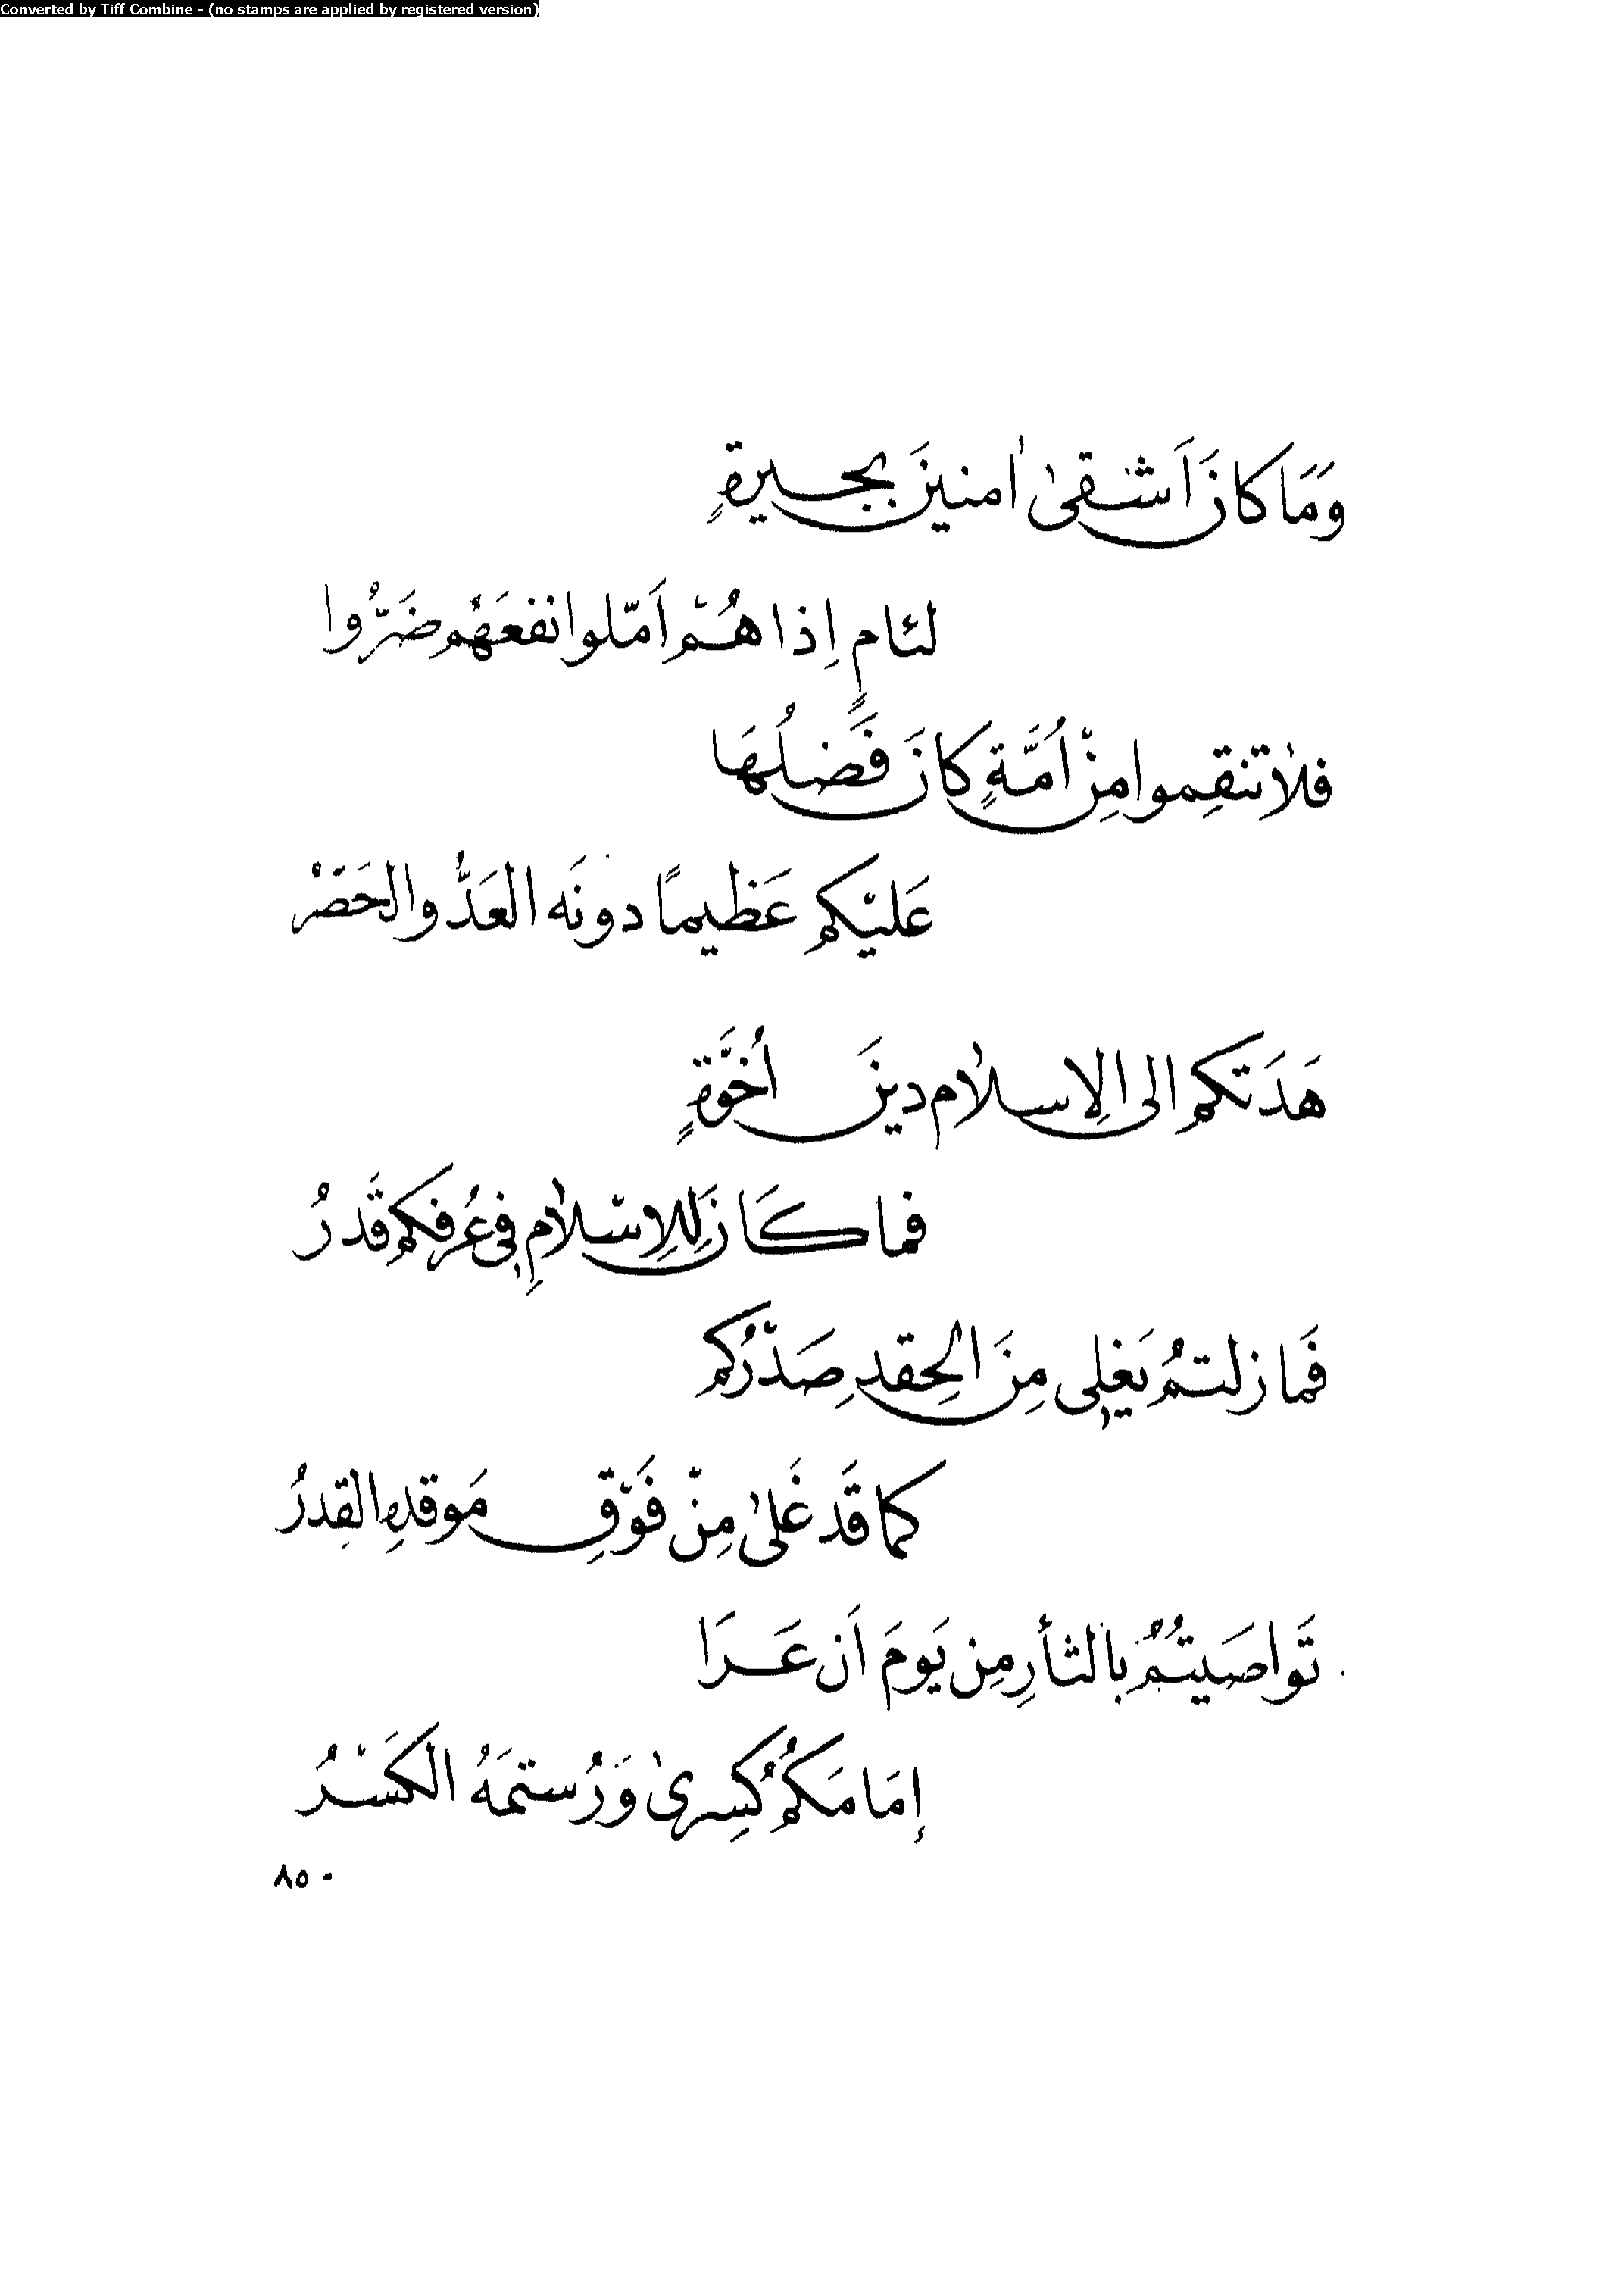 Converted by Tiff Combine - (no stamps are applied by registered version)
وَمَا كانَ اَشْقىٰ اٰمنينَ بجيرةٍ
لئامٍ اِذا هُمْ اَمّلوا نفعَهُم ضَرُّوا
فلاٰ تنقِموا مِنْ اُمَّةٍ كانَ فَضلُهَا
عَليْكم عَظيمًا دونَه العَدُّ والحَصْرُ
هَدَتكم الى الاِسلاٰم دينَ اُخوَّةٍ
فما كَانَ لِلاِسْلاٰمِ في عُرفِكم قَدرُ
فَما زلتمُ يَغلِي مِنَ الحِقدِ صَدْرُكم
كما قَد غَلىٰ مِنْ فَوْقِ مَوقدِهِ القِدرُ
تَواصَيتُمُ بالثأرِ مِن يَومَ اَن عَرَا
إمَامَكُمُ كِسرىٰ وَرُستمَهُ الكَسْرُ
٨٥٠